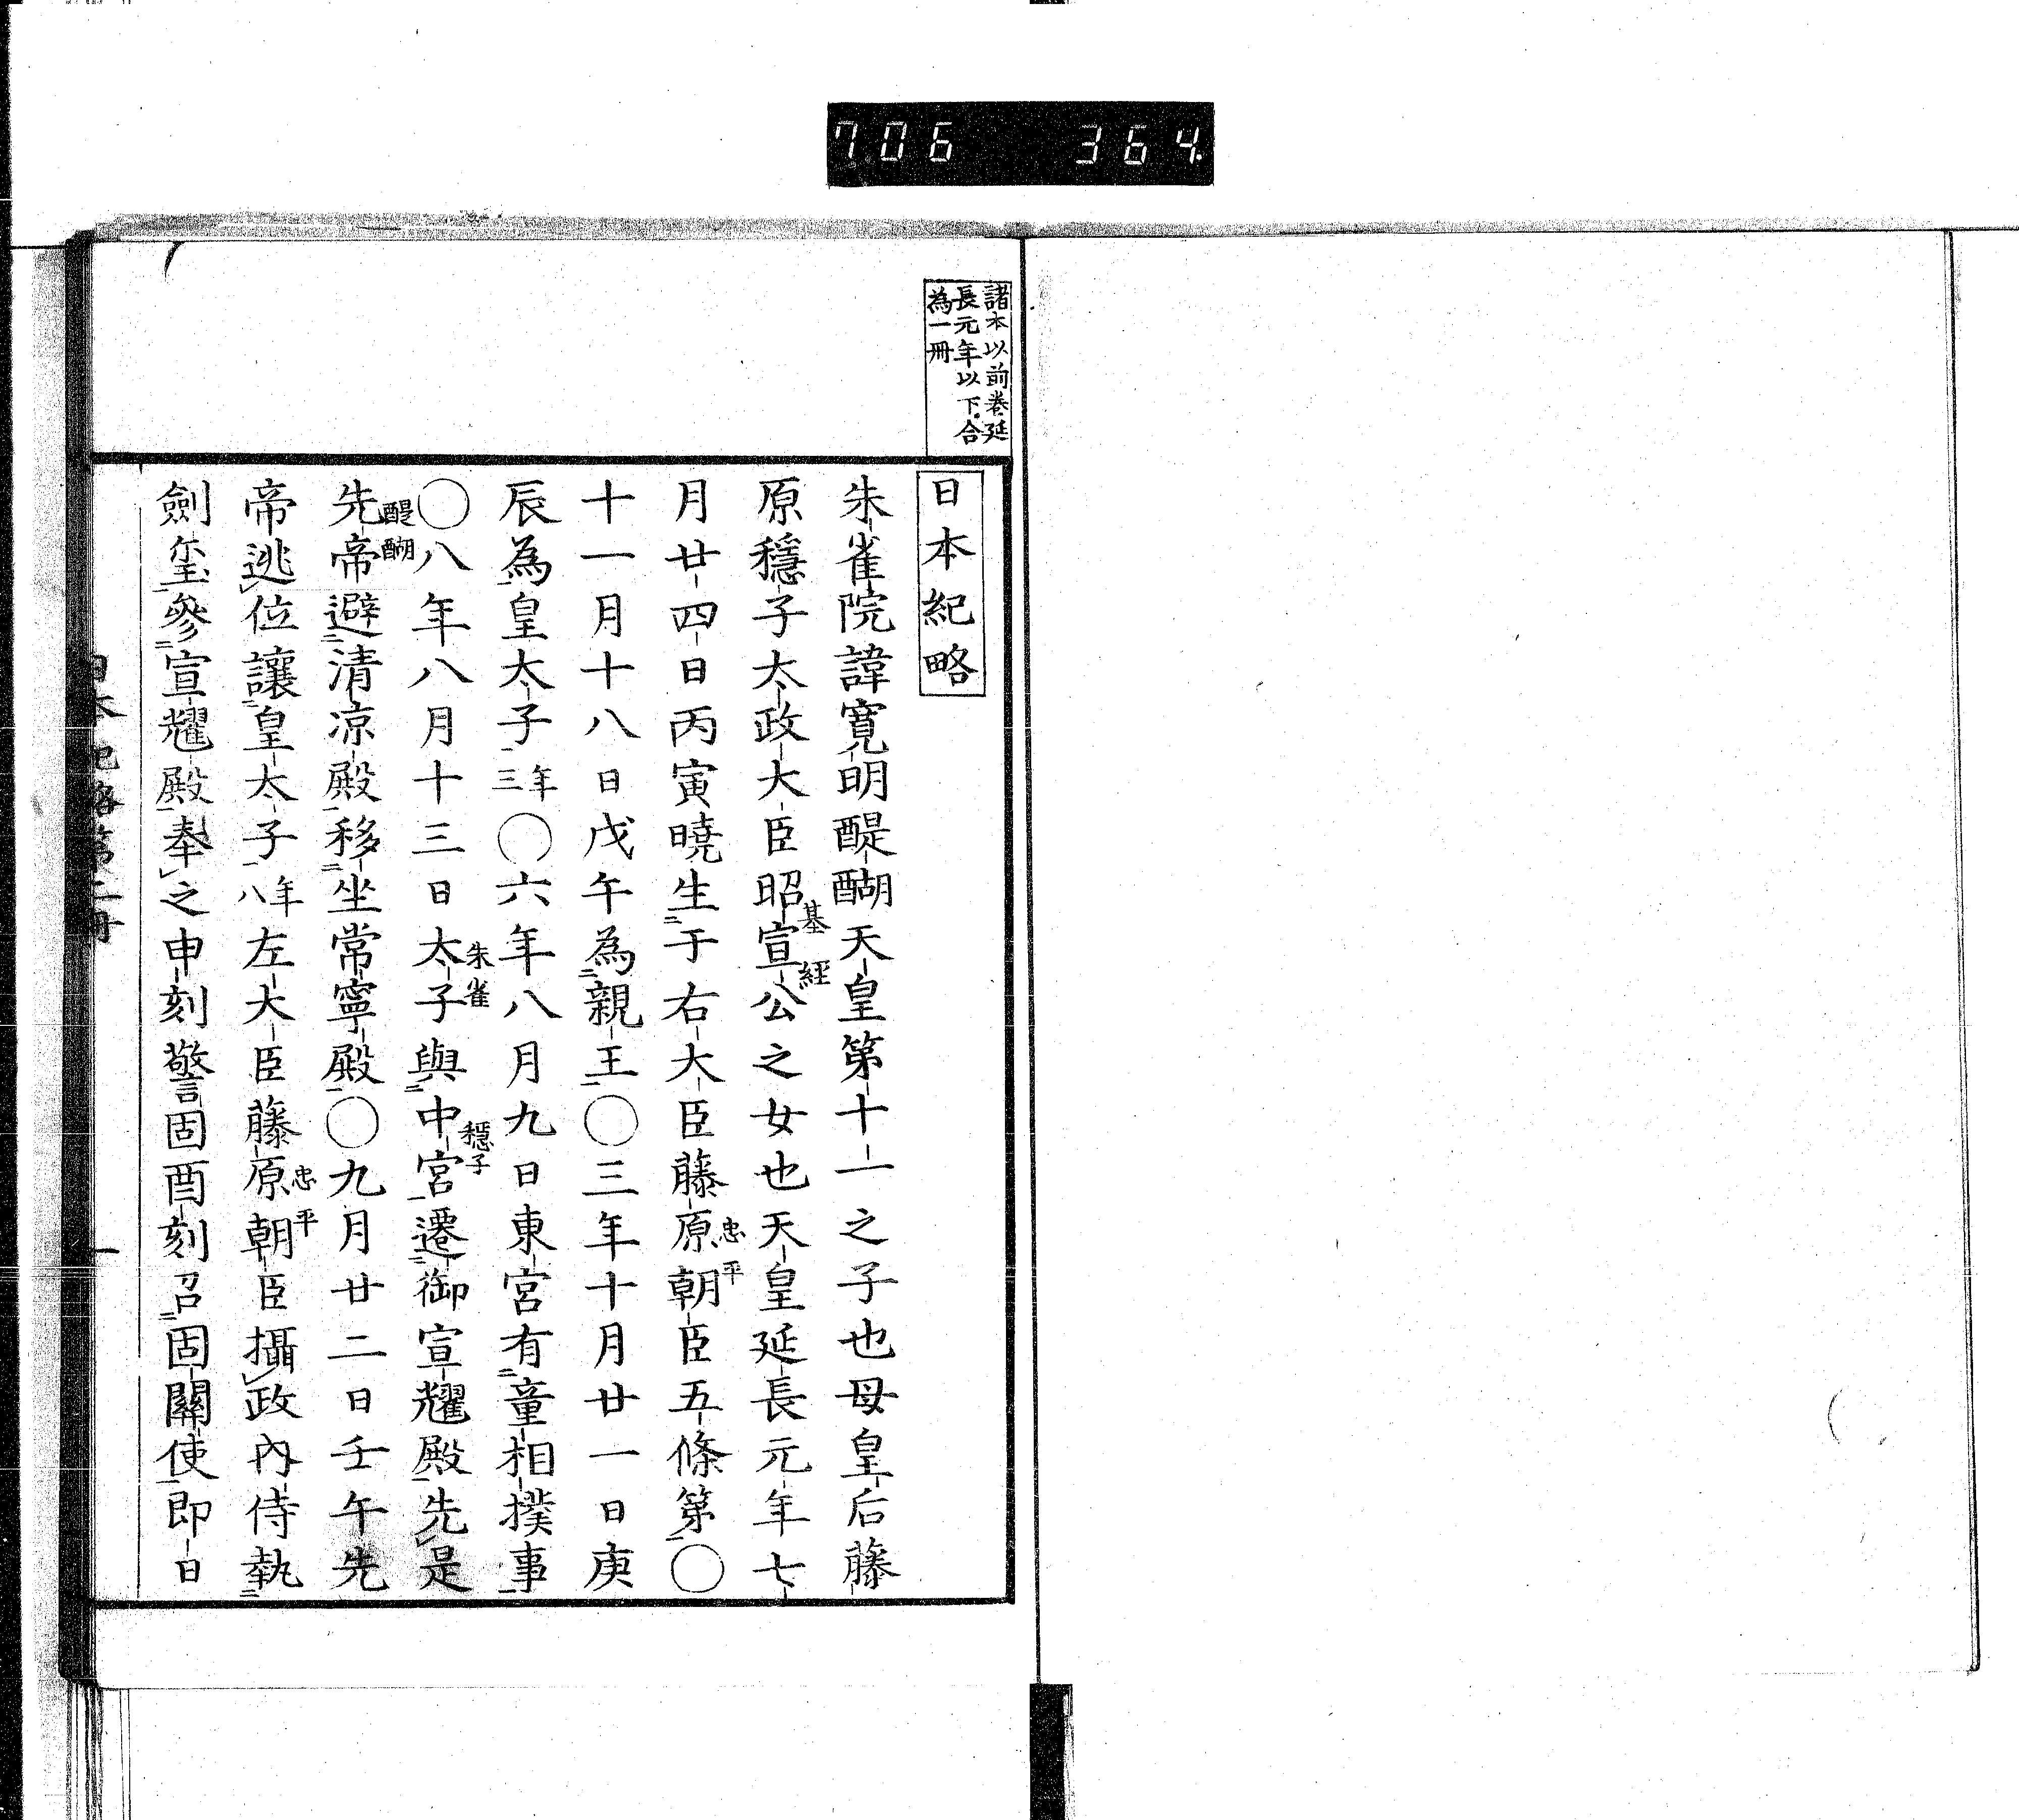 706 364
諸本以前巻延
長元年以下合
為一冊
日本紀略
朱雀院諱寛明醍醐天皇第十一之子也母皇后藤
原穏子太政大臣昭宣公之女也天皇延長元年七
基経
月廿四日丙寅暁生于右大臣藤原朝臣五條第〇
忠平
十一月十八日戊午為親王〇三年十月廿一日庚
辰為皇太子年三〇六年八月九日東宮有童相撲事
〇八年八月十三日太子與中宮遷御宣耀殿先是
朱雀
穏子
先帝避清凉殿移坐常寧殿〇九月廿二日壬午先
醍醐
帝逃位讓皇太子年八左大臣藤原朝臣攝政內侍執
忠平
劍璽參宣耀殿奉之申刻警固酉刻召固關使即日
日本紀略第二冊
一